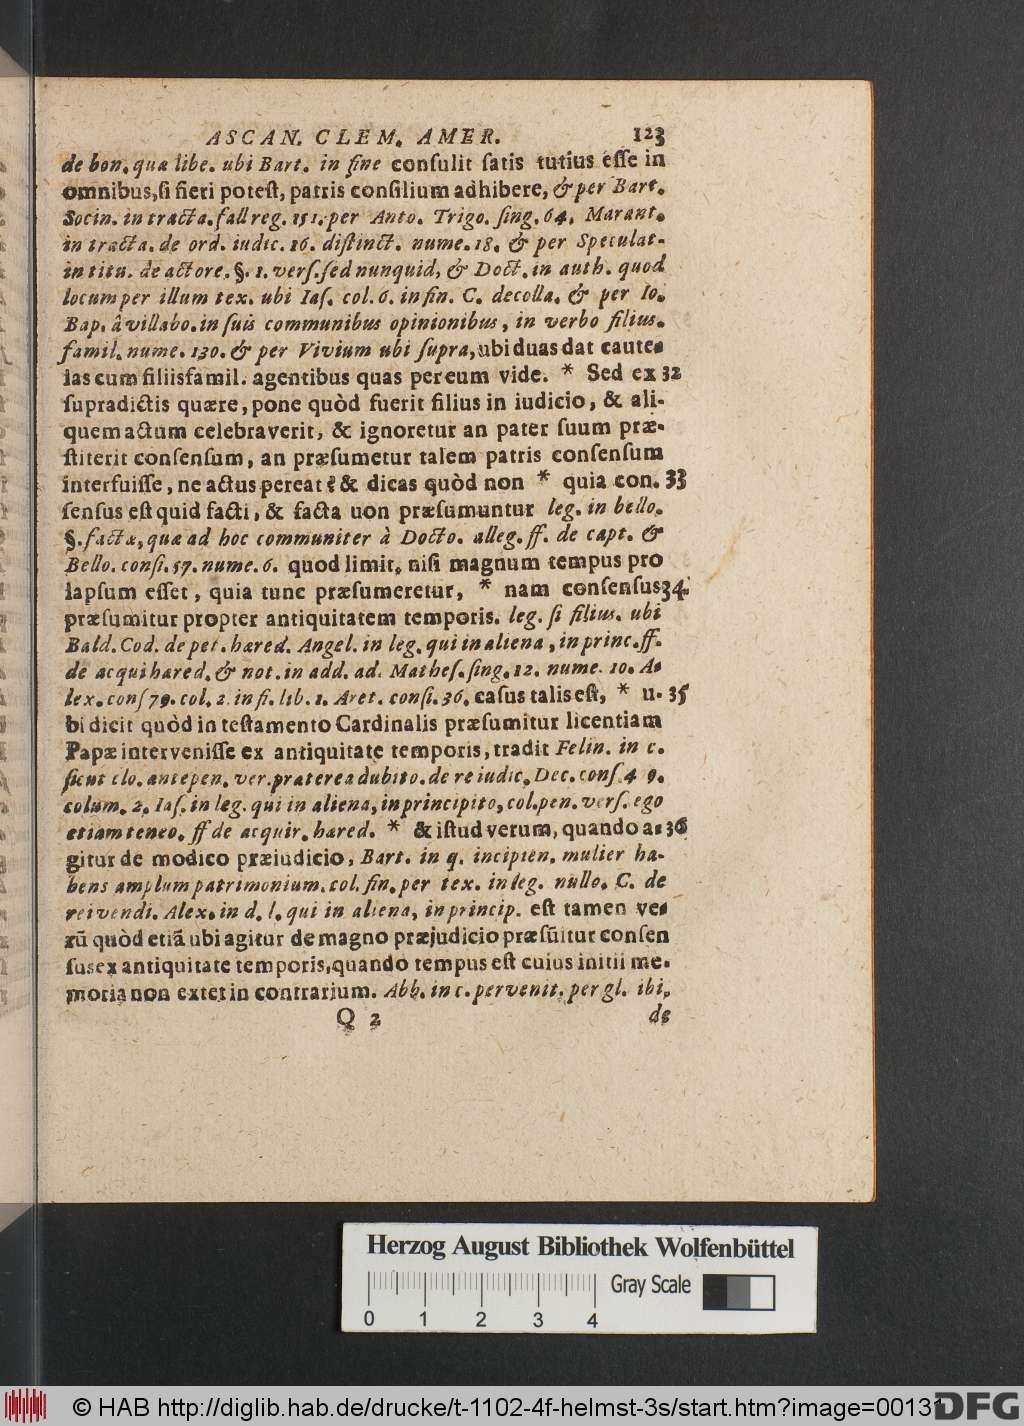 ASCAN. CLEM. AMER. 123
de bon. quæ libe. ubi Bart. in fine conſulit ſatis tutius eſſe in
omnibus, ſi fieri poteſt, patris conſilium adhibere, & per Bart.
Socin. in tracta. fall reg. 151. per Anto. Trigo. ſing. 64. Marant.
in tracta. de ord. iudic. 16. diſtinct. nume. 18. & per Speculat-
in titu. de actore. §. 1. verſ. ſed nunquid, & Doct. in auth. quod
locum per illum tex. ubi Iaſ. col. 6. in fin. C. de colla. & per Io.
Bap. â villabo. in ſuis communibus opinionibus, in verbo filius.
famil. nume. 130. & per Vivium ubi ſupra, ubi duas dat caute-
las cum filiisfamil. agentibus quas per eum vide. * Sed ex 32
ſupradictis quære, pone quòd fuerit filius in iudicio, & ali-
quem actum celebraverit, & ignoretur an pater ſuum præ-
ſtiterit conſenſum, an præſumetur talem patris conſenſum
interfuiſſe, ne actus pereat? & dicas quòd non * quia con. 33
ſenſus eſt quid facti, & facta uon præſumuntur leg. in bello.
§. facta, quæ ad hoc communiter à Docto. alleg. ff. de capt. &
Bello. conſi. 57. nume. 6. quod limit. niſi magnum tempus pro
lapſum eſſet, quia tunc præſumeretur, * nam conſenſus 34.
præſumitur propter antiquitatem temporis. leg. ſi filius. ubi
Bald. Cod. de pet. hæred. Angel. in leg. qui in aliena, in princ. ff.
de acqui hæred. & not. in add. ad. Matheſ. ſing. 12. nume. 10. A-
lex. conſ 79. col. 2. in fi. lib. 1. Aret. conſi. 36. caſus talis eſt, * u- 35
bi dicit quòd in teſtamento Cardinalis præſumitur licentiam
Papæ interveniſſe ex antiquitate temporis, tradit Felin. in c.
ſicut clo. antepen. ver. præterea dubito. de re iudic. Dec. conſ. 4 9.
colum. 2. Iaſ. in leg. qui in aliena, in principito, col. pen. verſ. ego
etiam teneo. ff de acquir. hæred. * & iſtud verum, quando a- 36
gitur de modico præiudicio, Bart. in q. incipien. mulier ha-
bens amplum patrimonium. col. fin. per tex. in leg. nullo. C. de
rei vendi. Alex. in d. l. qui in aliena, in princip. eſt tamen ve-
rū quòd etiā ubi agitur de magno præjudicio præſūitur conſen
ſus ex antiquitate temporis, quando tempus eſt cuius initii me-
moria non extet in contrarium. Abb. in c. pervenit. per gl. ibi.
Q 2 de
Herzog August Bibliothek Wolfenbüttel
Gray Scale
0 1 2 3 4
© HAB http://diglib.hab.de/drucke/t-1102-4f-helmst-3s/start.htm?image=00131
DFG